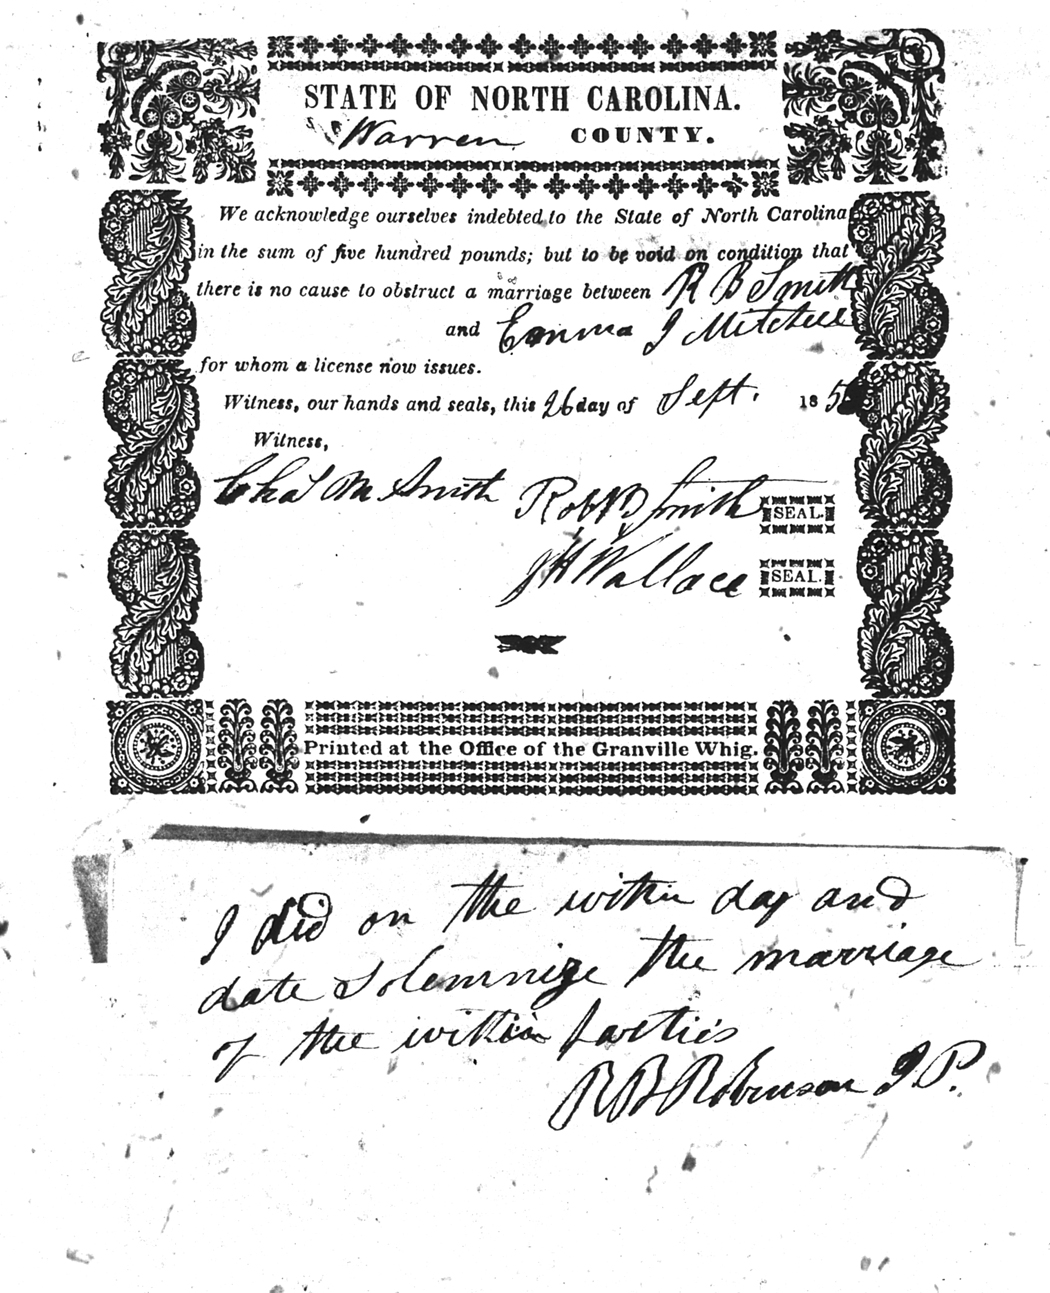 STATE OF NORTH CAROLINA.
Warren COUNTY.
We acknowledge ourselves indebted to the State of North Carolina
in the sum of five hundred pounds; but to be void on condition that
there is no cause to obstruct a marriage between R B Smith
and Emma J Mitchell
for whom a license now issues.
Witness, our hands and seals, this 26 day of Sept. 185
Witness,
Chas M Smith Robt B Smith SEAL.
J H Wallace SEAL.
Printed at the Office of the Granville Whig.
I did on the within day and
date solemnize the marriage
of the within parties
R B Robinson J.P.